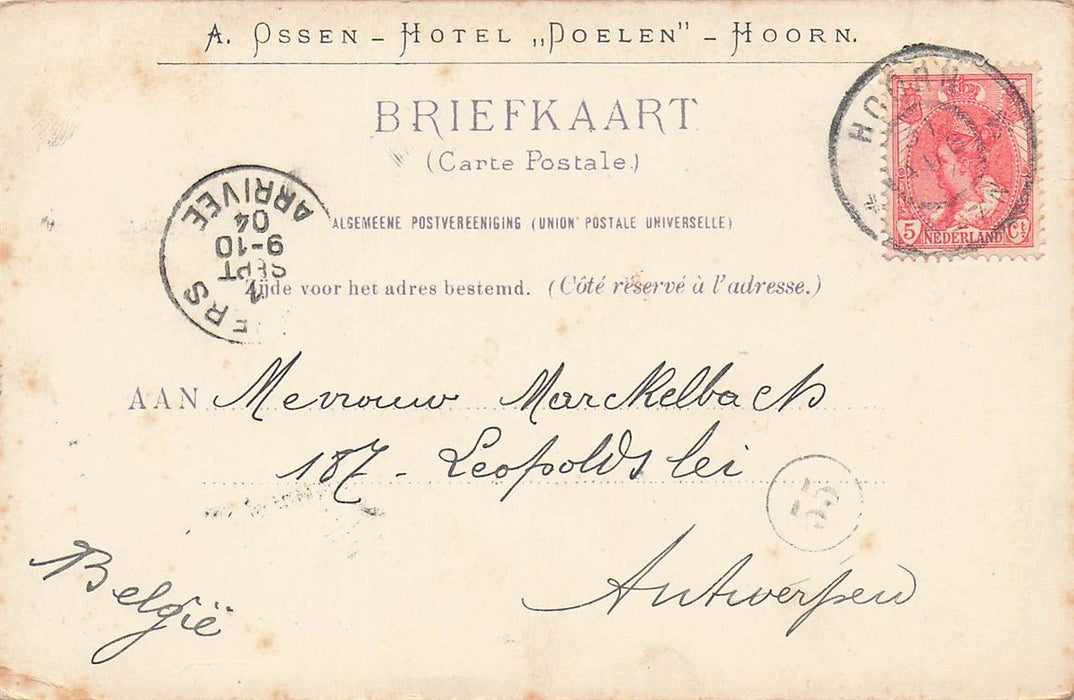 A. OSSEN – HOTEL „DOELEN” – HOORN.
BRIEFKAART
(Carte Postale.)
ALGEMEENE POSTVEREENIGING (UNION POSTALE UNIVERSELLE)
Zijde voor het adres bestemd. (Côté réservé à l'adresse.)
AAN Mevrouw Marckelbach
187 - Leopoldslei
Antwerpen
België
HOORN
5 NEDERLAND Ct
ARRIVEE
04
9-10
SEPT
ERS
55